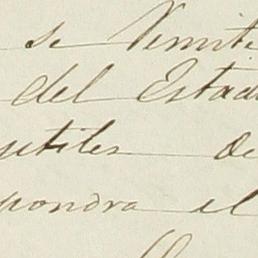 se remite
del Estad
utiles de
pondra el